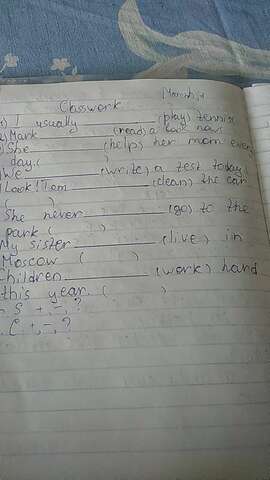 Classwork
1) I usually ________ (play) tennis
2) Mark ________ (read) a book now.
3) She ________ (help) her mom every
day. (          )
4) We ________ (write) a test today
5) Look! Tom ________ (clean) the car
(          )
She never ________ (go) to the
park (          )
My sister ________ (live) in
Moscow (          )
Children ________ (work) hard
this year. (          )
S +, -, ?
C +, -, ?